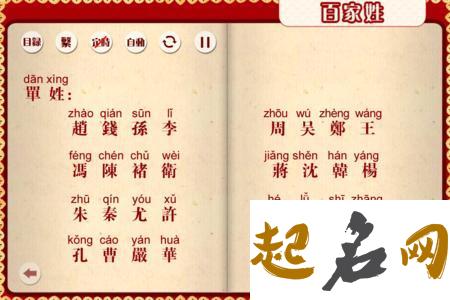 百家姓
目録 繁 定時 自動
dān xìng
單 姓：
zhào qián sūn lǐ
趙 錢 孫 李
féng chén chǔ wèi
馮 陳 褚 衛
zhū qín yóu xǔ
朱 秦 尤 許
kǒng cáo yán huà
孔 曹 嚴 華
zhōu wú zhèng wáng
周 吴 鄭 王
jiāng shěn hán yáng
蔣 沈 韓 楊
hé lǚ shī zhāng
起名网